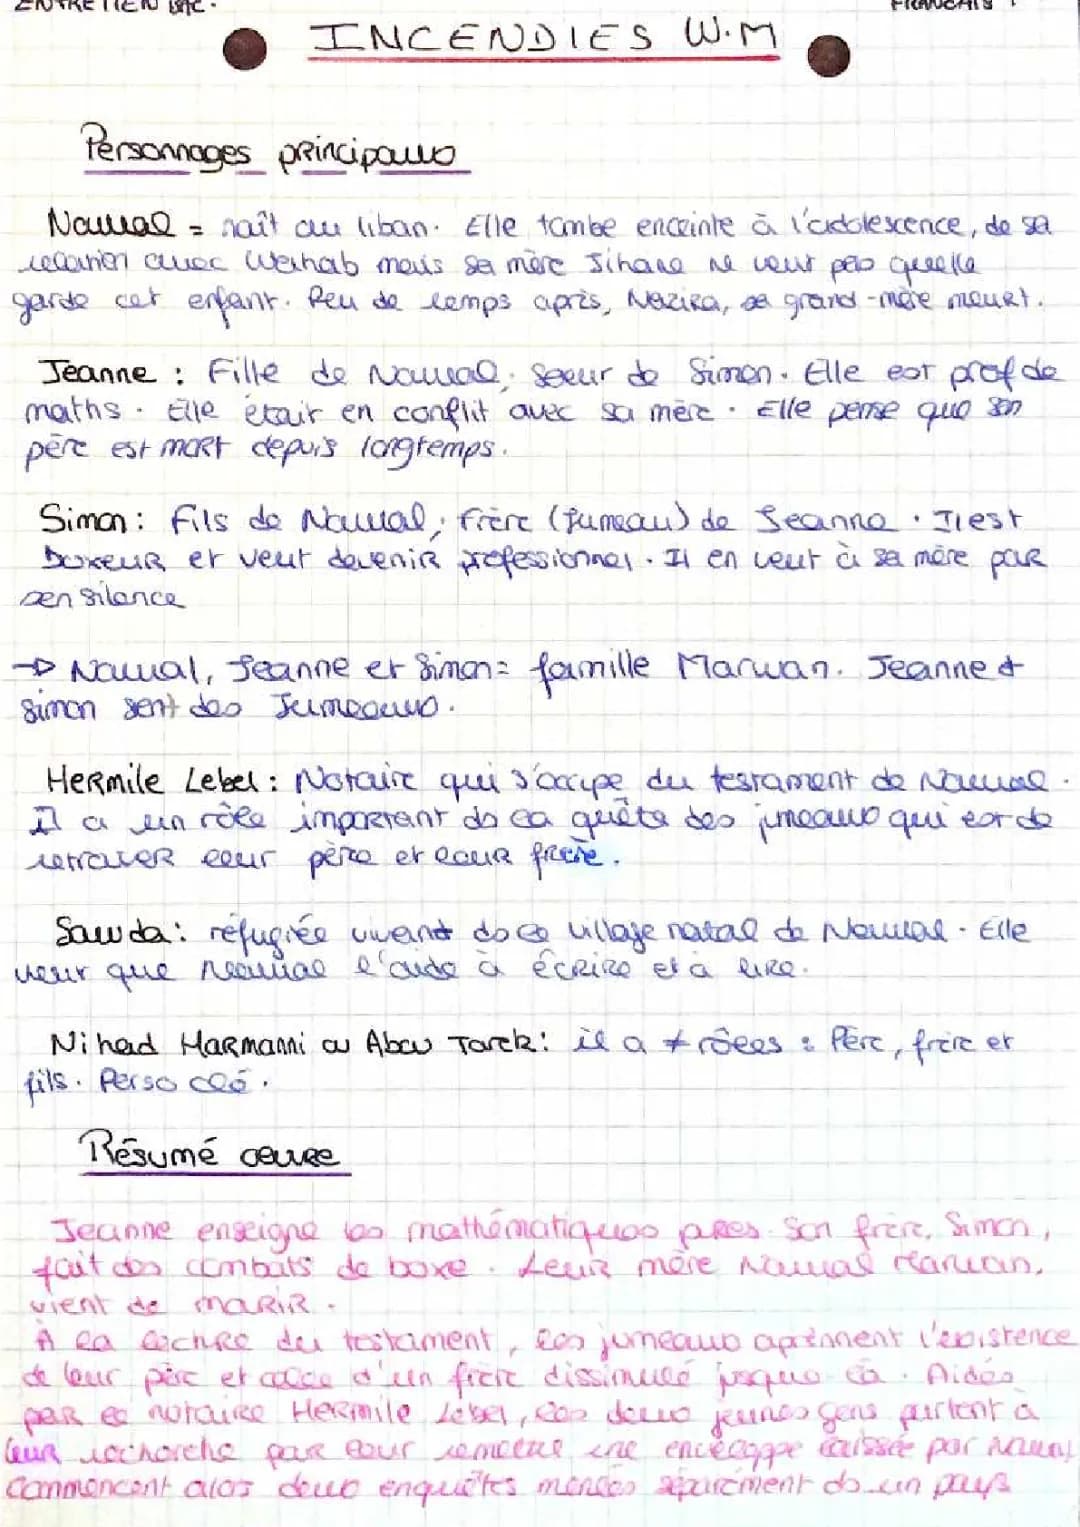 ENTRETIEN BAC.
FRANCAIS
INCENDIES W.M
Personnages principaux
Nawal = naît au liban. Elle tombe enceinte à l'adolescence, de sa
relation avec Wahab mais sa mère Jihane ne veut pas quelle
garde cet enfant. Peu de temps après, Nazira, sa grand-mère meurt.
Jeanne : Fille de Nawal, soeur de Simon. Elle est prof de
maths. Elle était en conflit avec sa mère. Elle pense que son
père est mort depuis longtemps.
Simon : Fils de Nawal, frère (jumeau) de Jeanne. Il est
boxeur et veut devenir professionnel. Il en veut à sa mère par
son silence
→ Nawal, Jeanne et Simon = famille Marwan. Jeanne et
Simon sont des Jumeaux.
Hermile Lebel : Notaire qui s'occupe du testament de Nawal.
Il a un rôle important ds la quête des jumeaux qui est de
retrouver leur père et leur frère.
Sawda : réfugiée vivant ds le village natal de Nawal. Elle
veut que Nawal l'aide à écrire et à lire.
Nihad Harmanni ou Abou Tarek : il a ≠ rôles : Père, frère et
fils. Perso clé.
Résumé œuvre
Jeanne enseigne les mathématiques pures. Son frère, Simon,
fait des combats de boxe. Leur mère Nawal Marwan,
vient de marir.
À la lecture du testament, les jumeaux aprennent l'existence
de leur père et celle d'un frère dissimulé jusque là. Aidés
par le notaire Hermile Lebel, les deux jeunes gens partent à
leur recherche par leur remettre une enveloppe laissée par Nawal
Commencent alors deux enquêtes menées séparément ds un pays